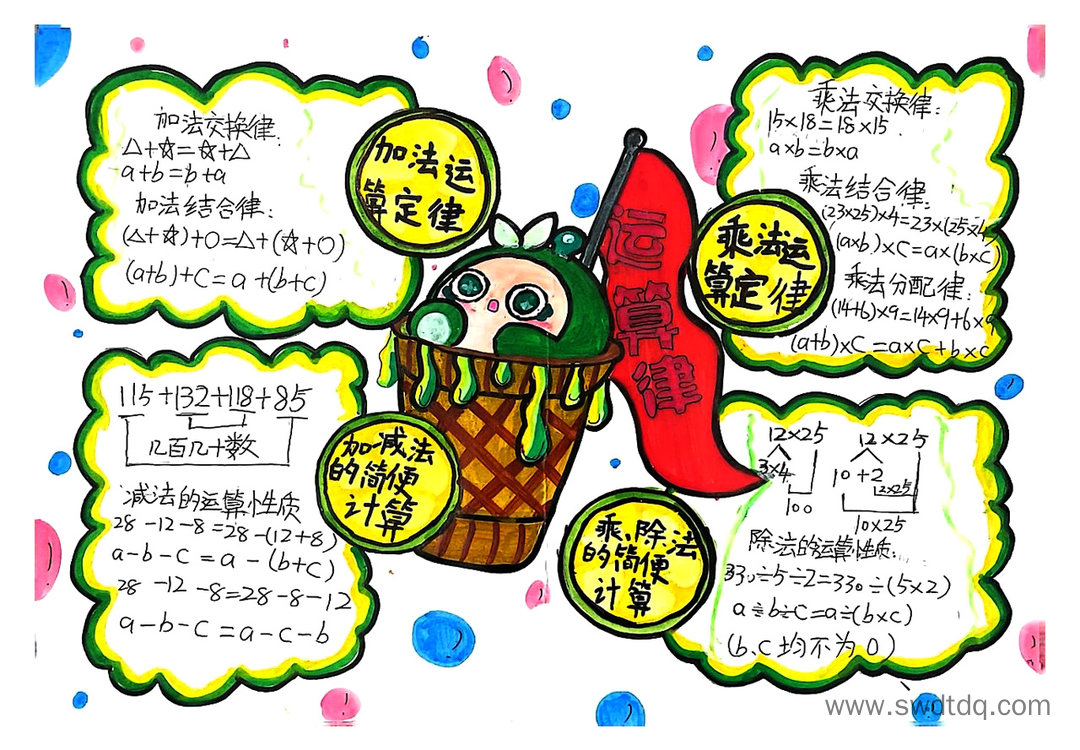 加法交换律:
△+☆=☆+△
a+b=b+a
加法结合律:
(△+☆)+○=△+(☆+○)
(a+b)+c=a+(b+c)
加法运
算定律
运算律
乘法运
算定律
乘法交换律:
15×18=18×15
a×b=b×a
乘法结合律:
(23×25)×4=23×(25×4)
(a×b)×c=a×(b×c)
乘法分配律:
(14+6)×9=14×9+6×9
(a+b)×c=a×c+b×c
115+132+118+85
几百几十数
减法的运算性质
28-12-8=28-(12+8)
a-b-c=a-(b+c)
28-12-8=28-8-12
a-b-c=a-c-b
加减法
的简便
计算
乘、除法
的简便
计算
12×25 12×25
3×4 10+2
12×25
100
10×25
除法的运算性质:
330÷5÷2=330÷(5×2)
a÷b÷c=a÷(b×c)
(b、c均不为0)
www.swdtdq.com